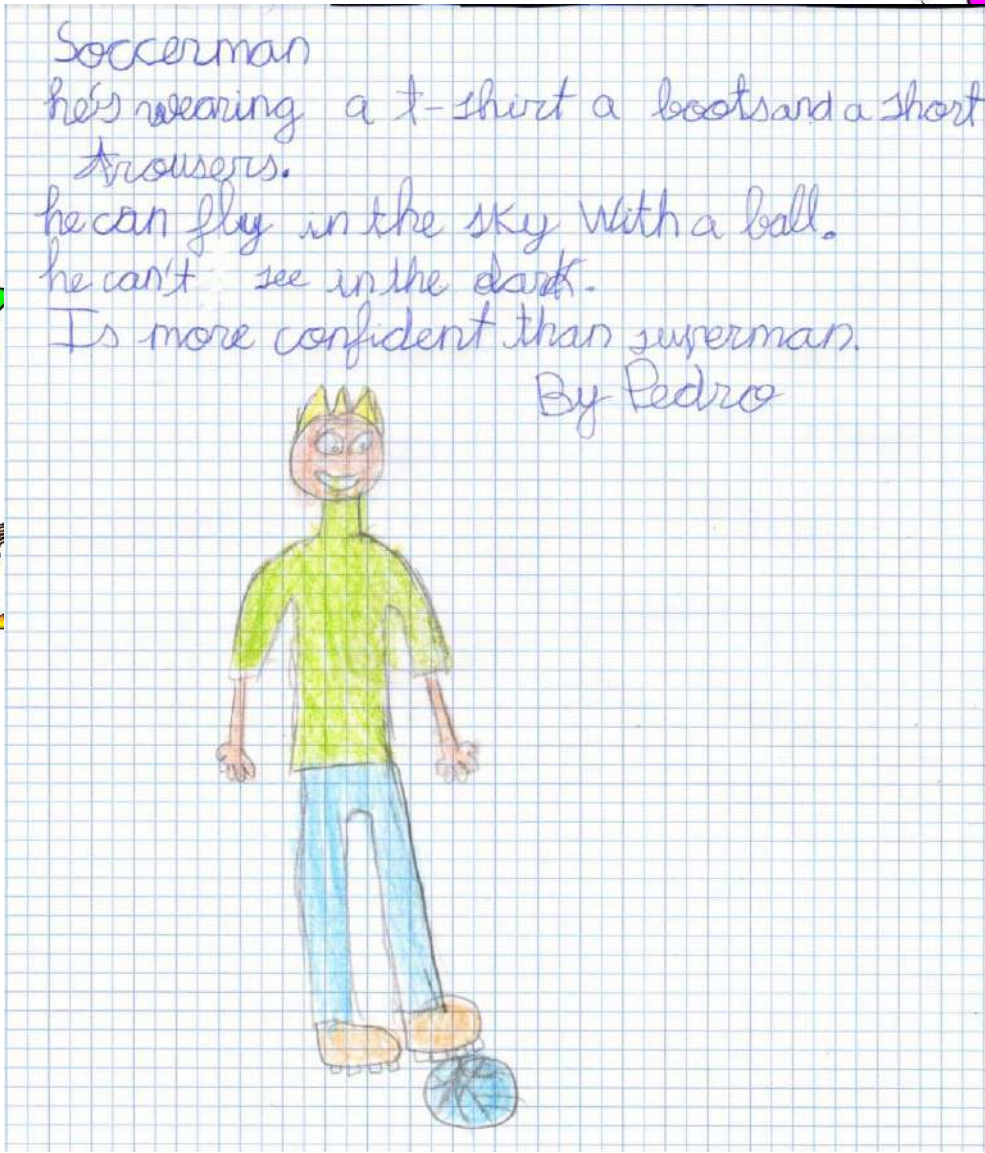 Soccerman
he's wearing a t-shirt a boots and a short
trousers.
he can fly in the sky With a ball.
he can't see in the dark.
Is more confident than superman.
By Pedro